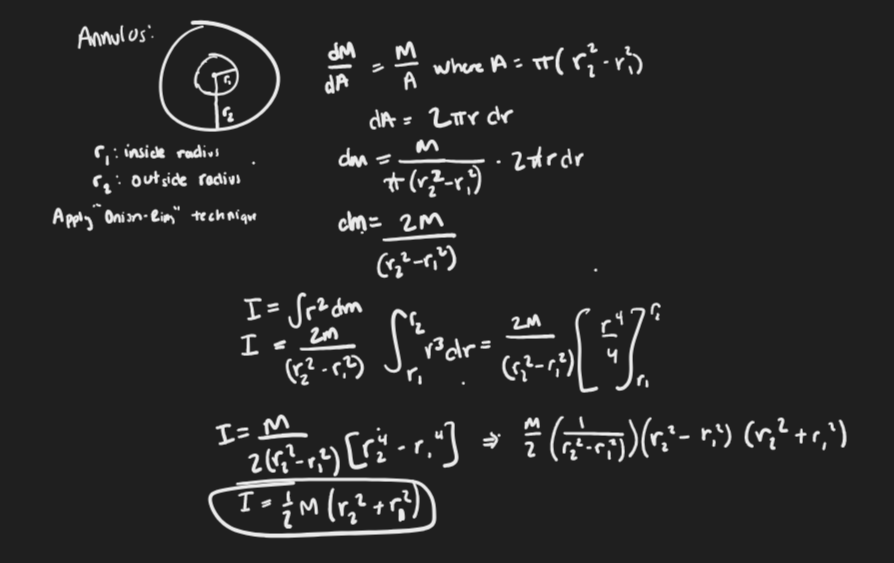 Annulus:
r₁
r₂
r₁: inside radius
r₂: outside radius
Apply "Onion-Rim" technique
dM/dA = M/A where A = π(r₂² - r₁²)
dA = 2πr dr
dm = m/(π(r₂² - r₁²)) · 2πr dr
dm = 2M/(r₂² - r₁²)
I = ∫r² dm
I = 2m/(r₂² - r₁²) ∫_{r₁}^{r₂} r³ dr = 2M/(r₂² - r₁²) [r⁴/4]_{r₁}^{r₂}
I = M/(2(r₂² - r₁²)) [r₂⁴ - r₁⁴] ⇒ M/2 (1/(r₂² - r₁²))(r₂² - r₁²)(r₂² + r₁²)
I = ½ M (r₂² + r₁²)